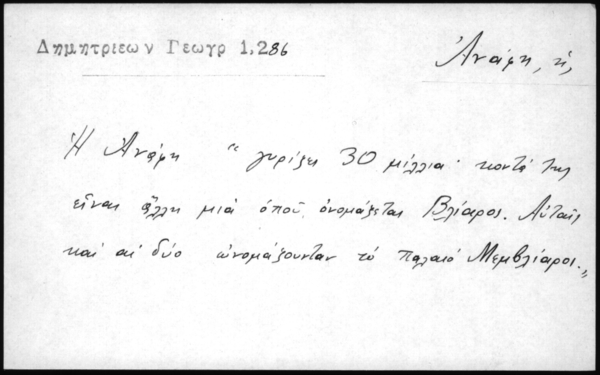 Δημητριεων Γεωγρ 1,286
Ἀνάφη, ἡ,
Ἡ Ἀνάφη "γυρίζει 30 μίλλια· κοντά της
εἶναι ἄλλη μιά ὁποῦ ὀνομάζεται Βλίαρος. Αὐταῖς
καί αἱ δύο ὠνομάζουνταν τό παλαιό Μεμβλίαροι."